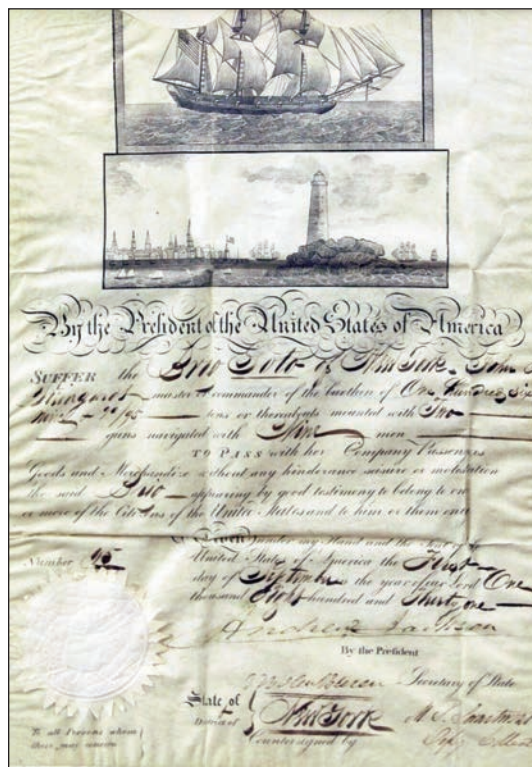 By the President of the United States of America
SUFFER the Brig Polo of New York John
master or commander of the burthen of One Hundred
tons or thereabouts mounted with Two
guns navigated with Nine men
TO PASS with her Company Passengers
Goods and Merchandize without any hinderance seisure or molestation
the said Brig appearing by good testimony to belong to one
or more of the Citizens of the United States and to him or them only
Given under my Hand and the Seal of the
United States of America the First
Number 45
day of September in the year of our Lord One
thousand Eight hundred and Thirty one
Andrew Jackson
By the President
Secretary of State
State of
District of
New York
Countersigned by
To all Persons whom
these may concern